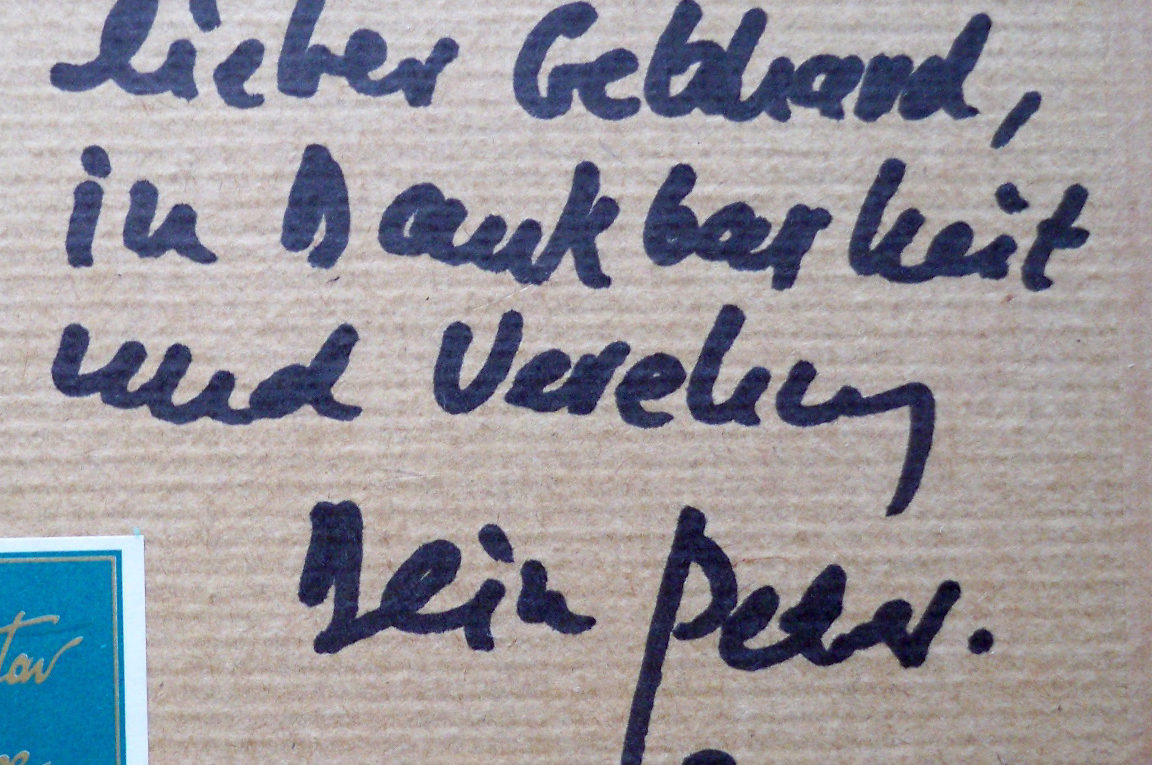 lieber Gebhard,
in Dankbarkeit
und Verehrung
Dein Peter.